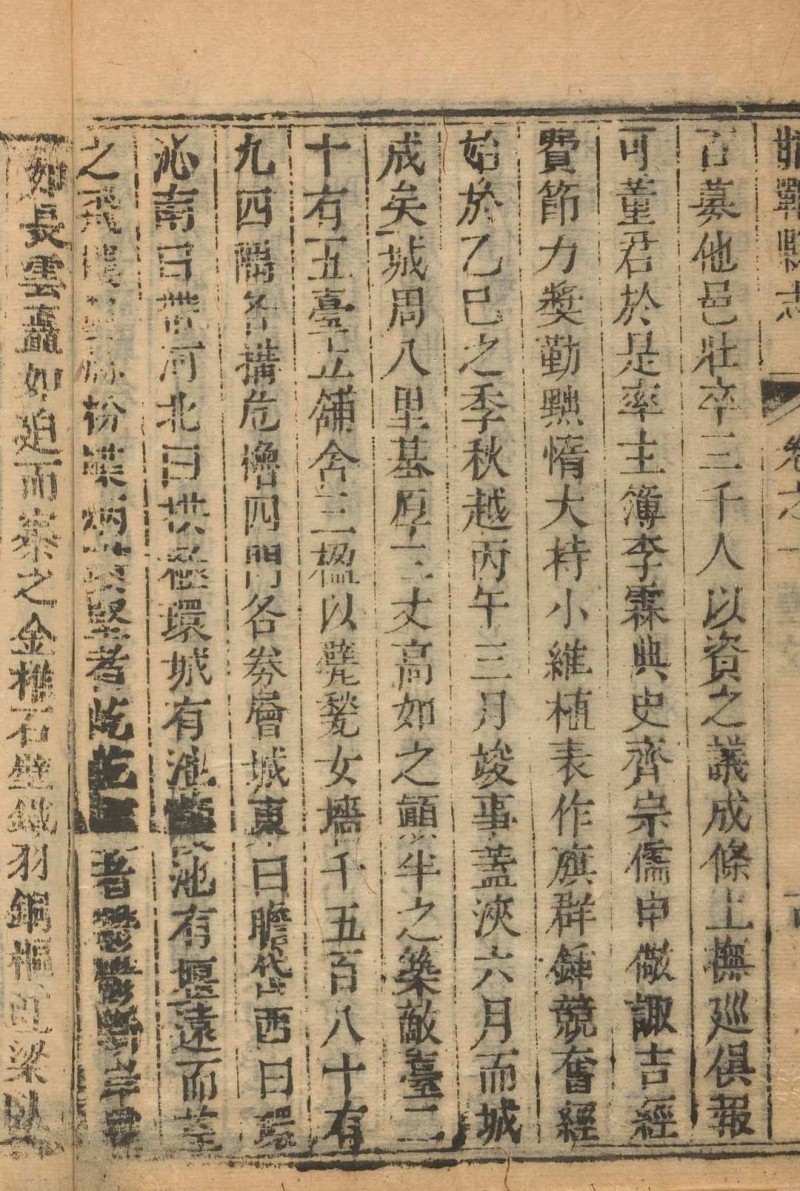 縣志 卷之
召募他邑壯卒三千人以資之議成條上撫廵俱報
可董君於是率主簿李霖典史齊宗儒申儆諏吉經
費節力奬勤黜惰大持小維植表作旗群鍤競奮經
始於乙巳之季秋越丙午三月竣事蓋浹六月而城
成矣城周八里基厚三丈高如之顛半之築敵臺二
十有五臺立舖舍三楹以甓甃女墻千五百八十有
九四隅各搆危櫓四門各劵層城東曰瞻岱西曰環
沁南曰帶河北曰拱極環城有池池有堰遠而望
之飛樓粉堞堅者屹者鬱鬱
如長雲矗如廹而察之金椎石壁鐵羽銅樞虹梁臥